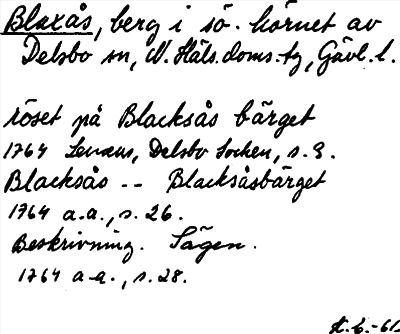 Blaxås, berg i sö. hörnet av
Delsbo sn, N. Häls. doms. tg, Gävl. l.
röset på Blacksås bärget
1764 Lenæus, Delsbo Sochen, s. 3.
Blacksås -- Blacksåsbärget
1764 a.a., s. 26.
Beskrivning. Sägen.
1764 a.a., s. 28.